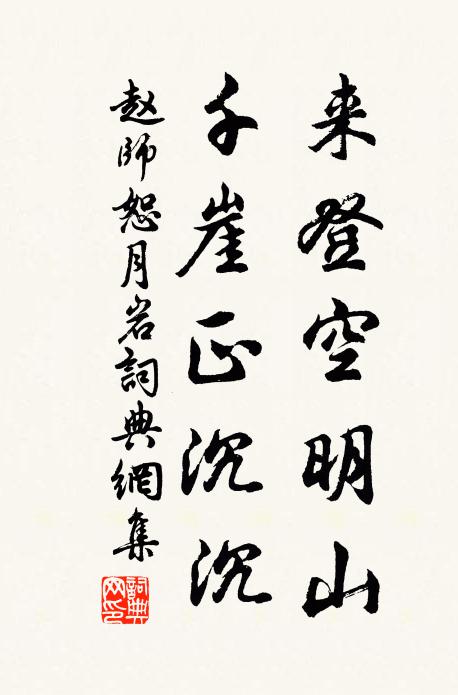 来登空明山
千崖正沉沉
赵師恕月岩詞典網集
詞典网印